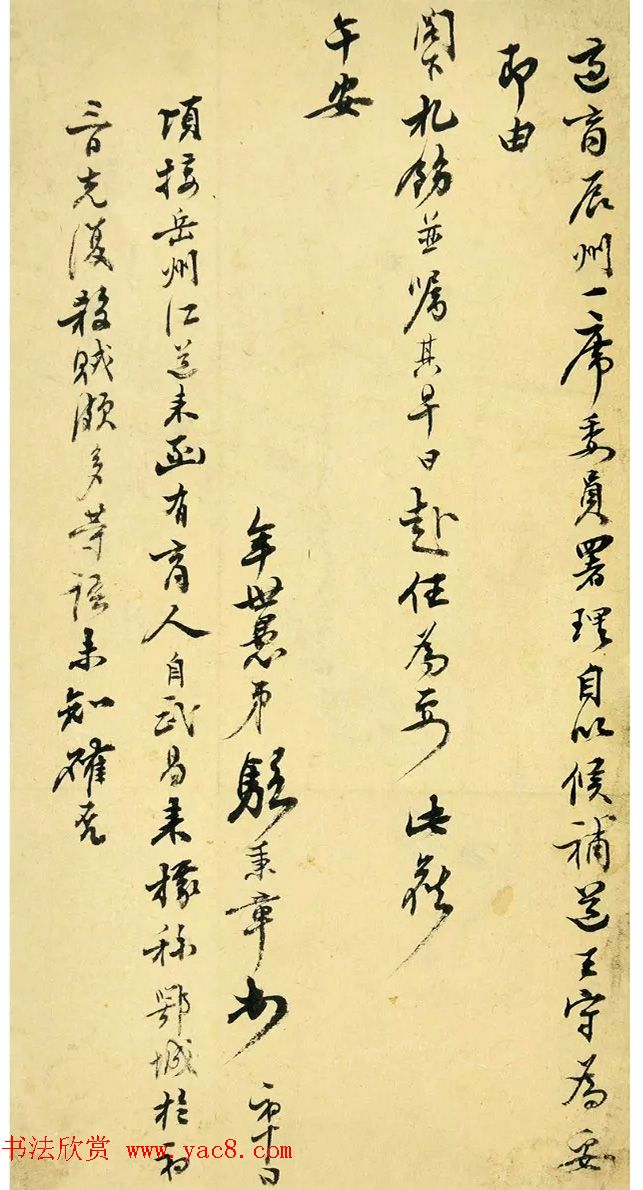 适育辰州一席委員署理自以候補道王守為妥
即由
閣下札飭並嘱其早日赴任為要此啟
午安
年世愚弟駱秉章
頃接岳州江道来函有商人自武昌来據称鄂城於初
三日克復殺賊頗多等語未知確否
书法欣赏 www.yac8.com